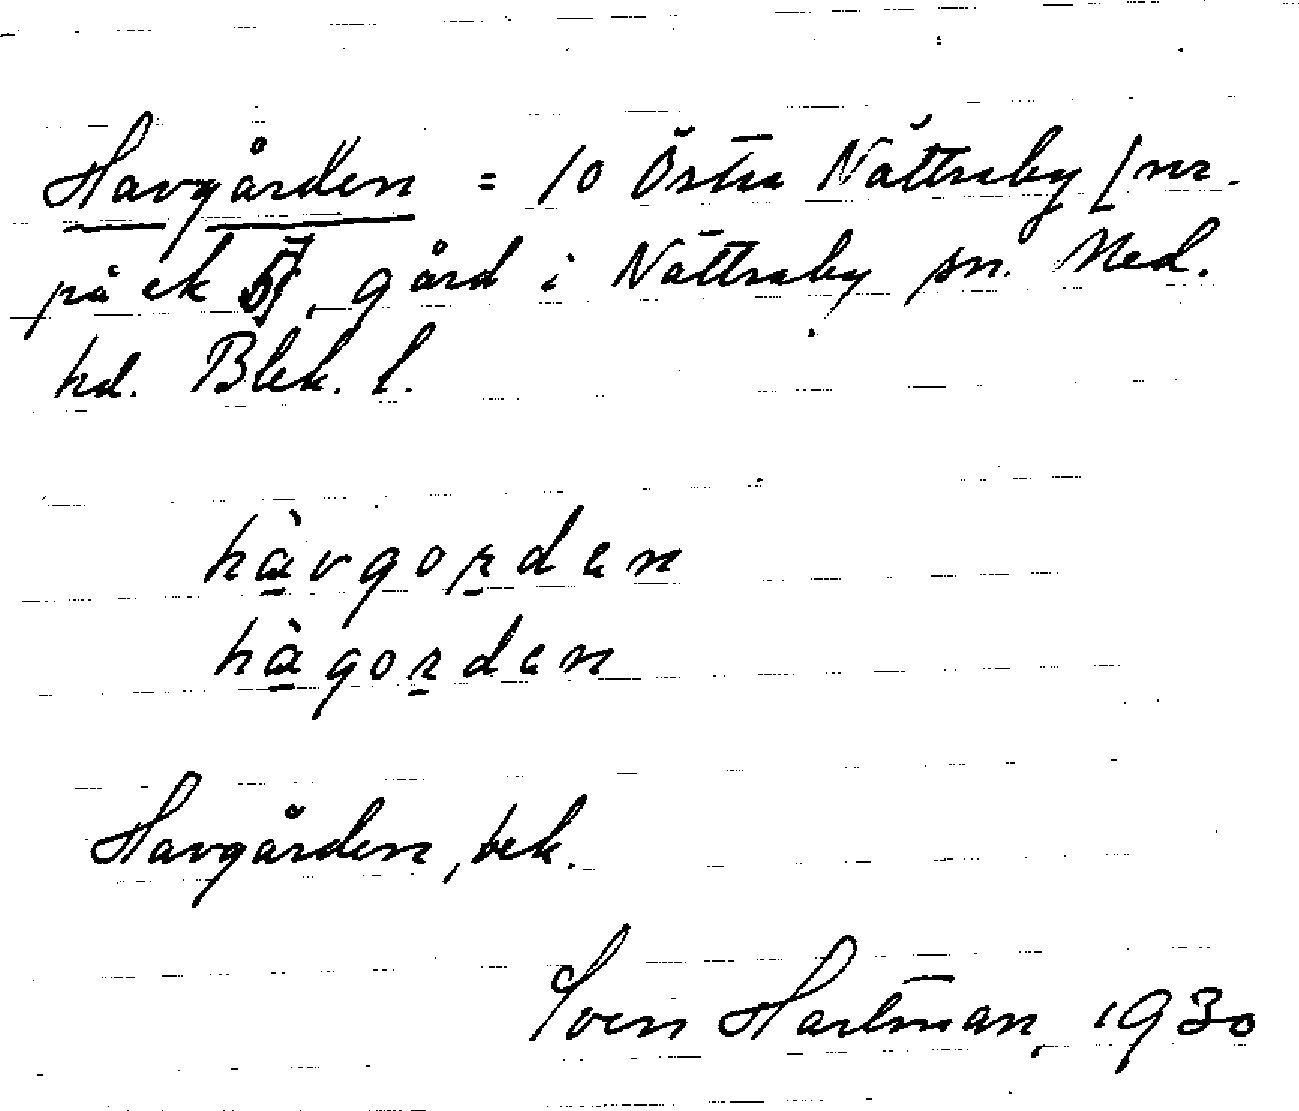 Havgården = 10 Östra Nättraby [nr.
på ek , gård i Nättraby sn. Med.
hd. Blek. l.
hàvgorden
hàgorden
Havgården, bek.
Sven Hartman, 1930